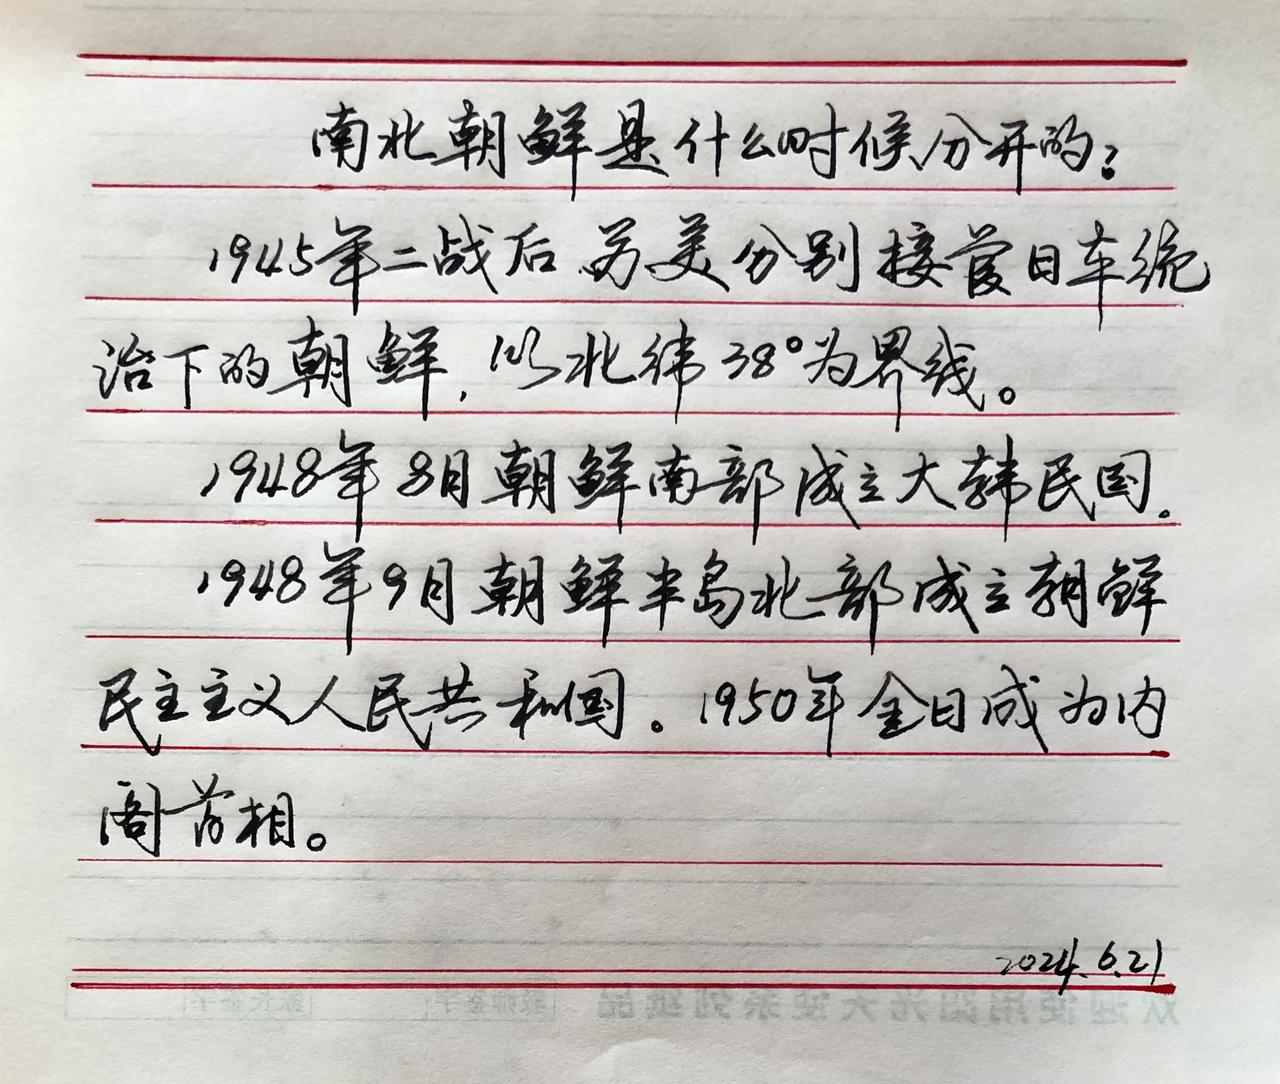 南北朝鲜是什么时候分开的?
1945年二战后苏美分别接管日本统
治下的朝鲜,以北纬38°为界线。
1948年8月朝鲜南部成立大韩民国。
1948年9月朝鲜半岛北部成立朝鲜
民主主义人民共和国。1950年金日成为内
阁首相。
2024.6.21
欢迎使用阳光天使系列纸品